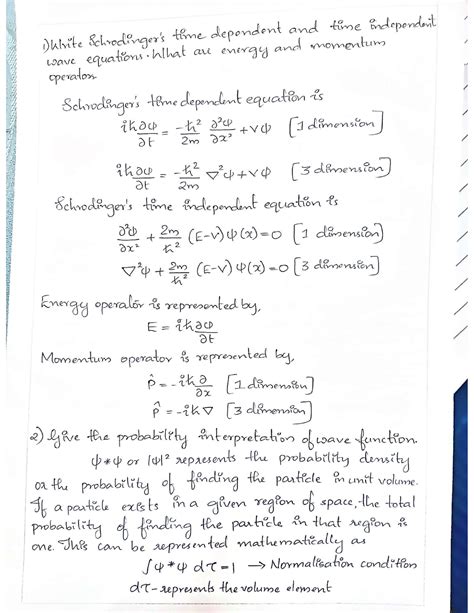 1) Write Schrodinger's time dependent and time independent
wave equations. What are energy and momentum
operators.
Schrodinger's time dependent equation is
iħ∂ψ/∂t = -ħ²/2m ∂²ψ/∂x² + vψ [1 dimension]
iħ∂ψ/∂t = -ħ²/2m ∇²ψ + vψ [3 dimension]
Schrodinger's time independent equation is
∂²ψ/∂x² + 2m/ħ² (E-V) ψ(x)=0 [1 dimension]
∇²ψ + 2m/ħ² (E-V) ψ(x)=0 [3 dimension]
Energy operator is represented by,
E = iħ∂ψ/∂t
Momentum operator is represented by,
p̂ = -iħ∂/∂x [1 dimension]
p̂ = -iħ∇ [3 dimension]
2) Give the probability interpretation of wave function.
ψ*ψ or |ψ|² represents the probability density
or the probability of finding the particle in unit volume.
If a particle exists in a given region of space, the total
probability of finding the particle in that region is
one. This can be represented mathematically as
∫ψ*ψ dτ=1 → Normalisation condition
dτ-represents the volume element